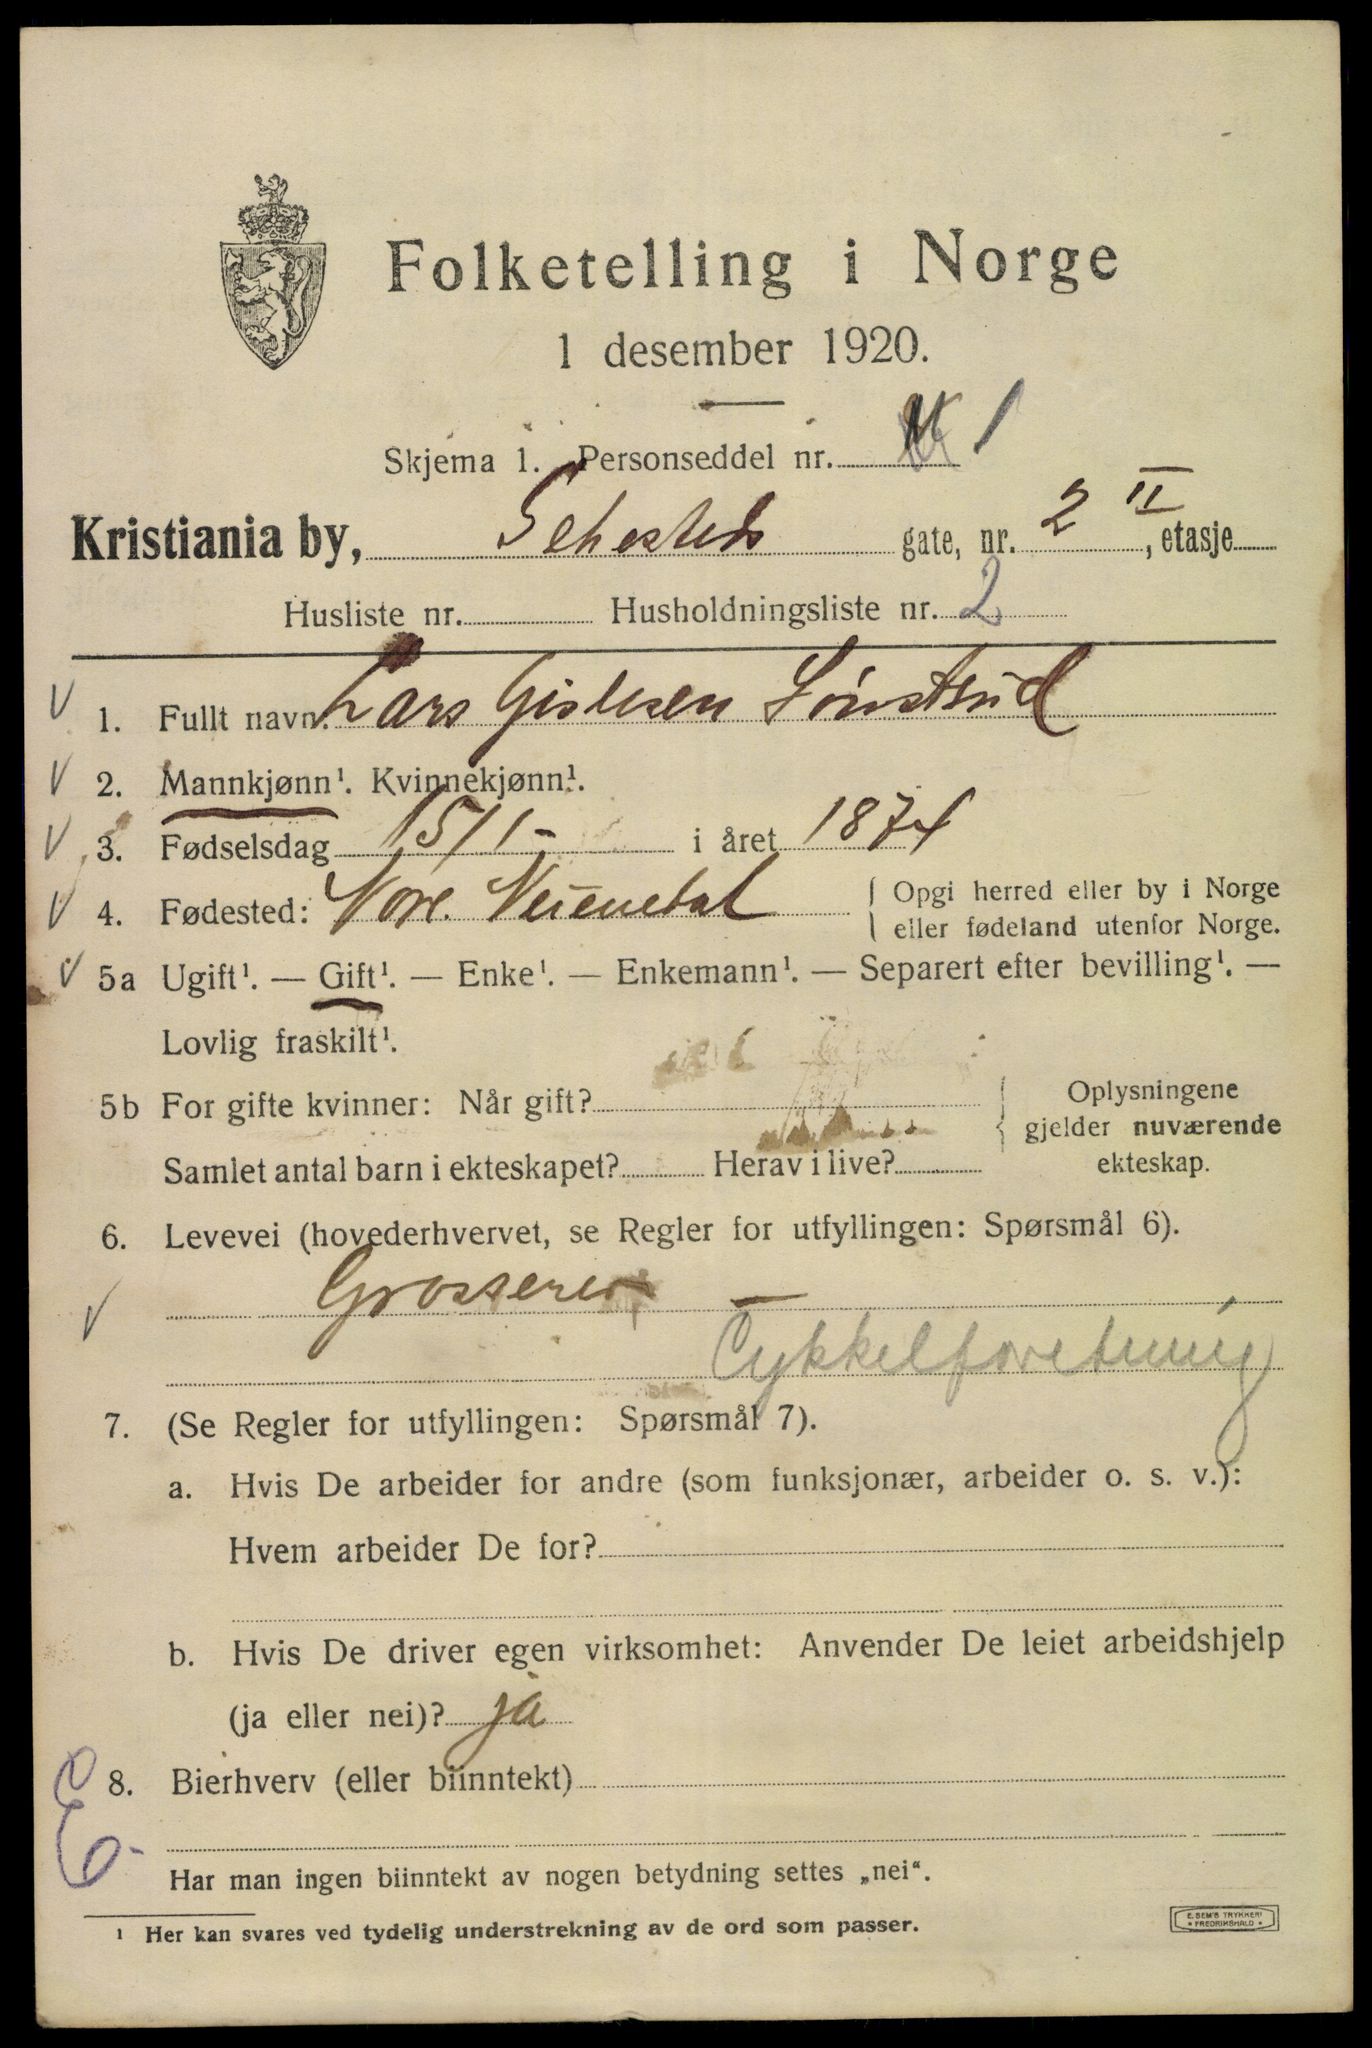 Folketelling i Norge
1 desember 1920.
Skjema 1. Personseddel nr. 1
Kristiania by, Sehesteds gate, nr. 2 II, etasje
Husliste nr. Husholdningsliste nr. 2
1. Fullt navn: Lars Gislesen Sønstrud
2. Mannkjønn¹. Kvinnekjønn¹.
3. Fødselsdag 15/1- i året 1874
4. Fødested: Nore. { Opgi herred eller by i Norge
eller fødeland utenfor Norge.
5a Ugift¹. — Gift¹. — Enke¹. — Enkemann¹. — Separert efter bevilling¹. —
Lovlig fraskilt¹.
5b For gifte kvinner: Når gift? { Oplysningene
gjelder nuværende
Samlet antal barn i ekteskapet? Herav i live? ekteskap.
6. Levevei (hovederhvervet, se Regler for utfyllingen: Spørsmål 6).
Grosserer —
Cykkelforetning
7. (Se Regler for utfyllingen: Spørsmål 7).
a. Hvis De arbeider for andre (som funksjonær, arbeider o. s. v.):
Hvem arbeider De for?
b. Hvis De driver egen virksomhet: Anvender De leiet arbeidshjelp
(ja eller nei)? ja
8. Bierhverv (eller biinntekt)
Har man ingen biinntekt av nogen betydning settes „nei“.
¹ Her kan svares ved tydelig understrekning av de ord som passer.
E. SEM'S TRYKKERI
FREDRIKSHALD